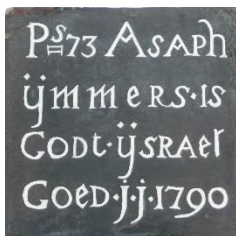 Ps=73 Asaph
ÿmmers·is
Godt·ÿsrael
Goed·j·j·1790